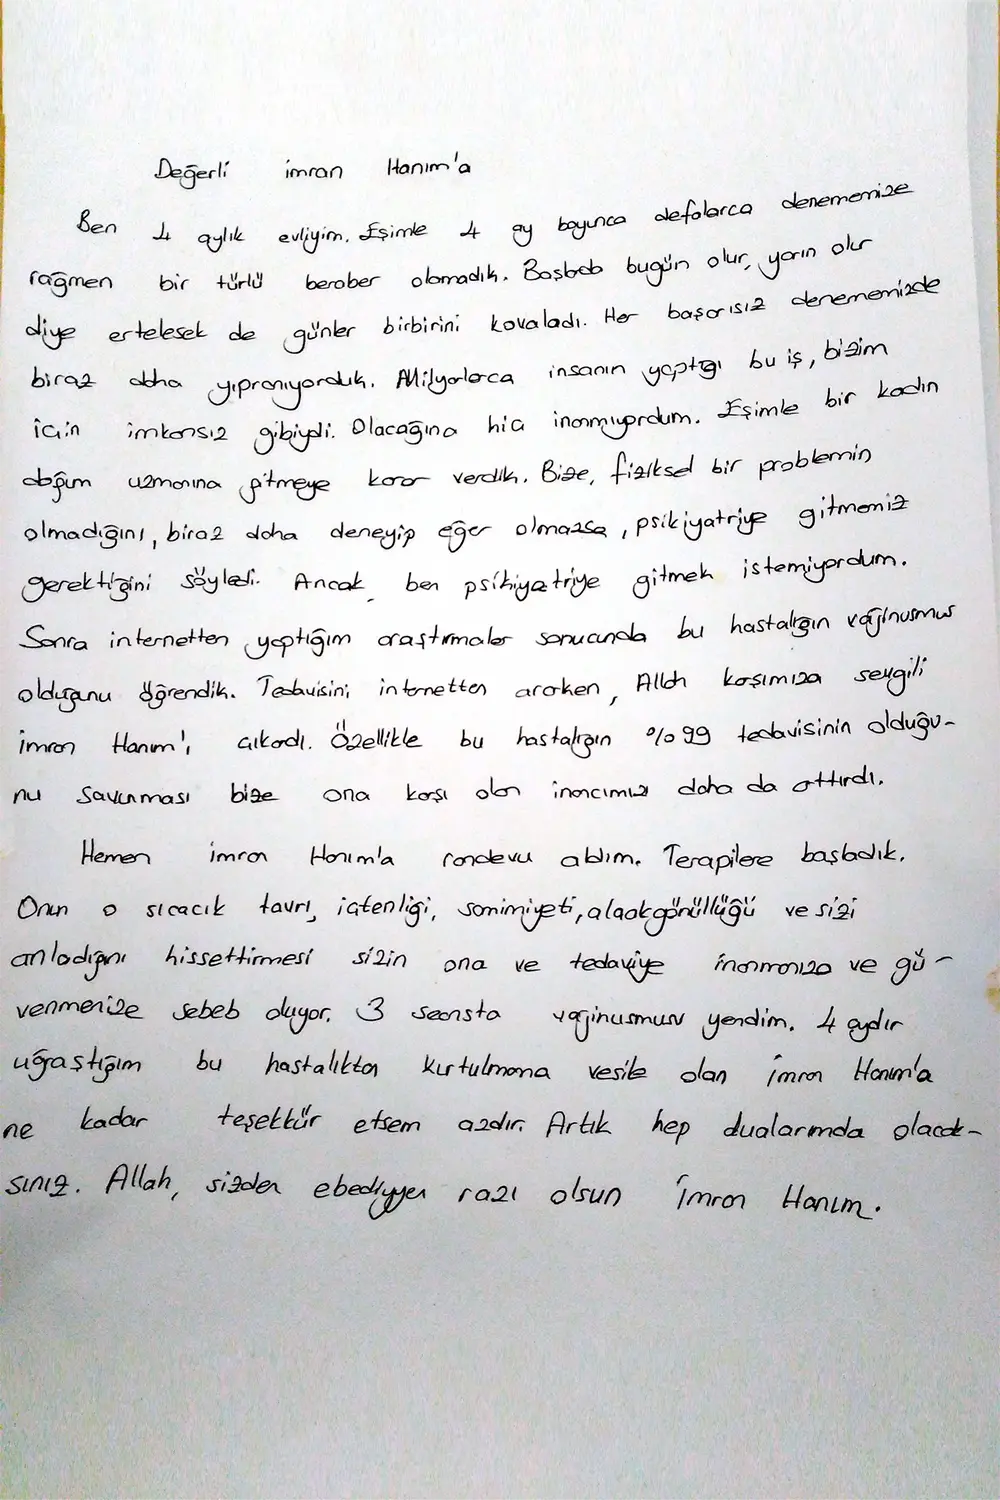 Değerli imran Hanım'a
Ben 4 aylık evliyim. Eşimle 4 ay boyunca defalarca denememize
rağmen bir türlü beraber olamadık. Başlarda bugün olur, yarın olur
diye ertelesek de günler birbirini kovaladı. Her başarısız denememizde
biraz daha yıpranıyorduk. Milyolarca insanın yaptığı bu iş, bizim
için imkansız gibiydi. Olacağına hiç inanmıyordum. Eşimle bir kadın
doğum uzmanına gitmeye karar verdik. Bize, fiziksel bir problemin
olmadığını, biraz daha deneyip eğer olmazsa, psikiyatriye gitmemiz
gerektiğini söyledi. Ancak, ben psikiyatriye gitmek istemiyordum.
Sonra internetten yaptığım araştırmalar sonucunda bu hastalığın vajinusmus
olduğunu öğrendik. Tedavisini internetten ararken, Allah karşımıza sevgili
imran Hanım'ı çıkardı. Özellikle bu hastalığın %99 tedavisinin olduğu-
nu savunması bize ona karşı olan inancımızı daha da arttırdı.
Hemen imran Hanım'a randevu aldım. Terapilere başladık.
Onun o sıcacık tavrı, içtenliği, samimiyeti, alçakgönüllüğü ve sizi
anladığını hissettirmesi sizin ona ve tedaviye inanmanıza ve gü-
venmenize sebeb oluyor. 3 seansta vajinusmusu yendim. 4 aydır
uğraştığım bu hastalıktan kurtulmama vesile olan imran Hanım'a
ne kadar teşekkür etsem azdır. Artık hep dualarımda olacak-
sınız. Allah, sizden ebediyyen razı olsun imran Hanım.